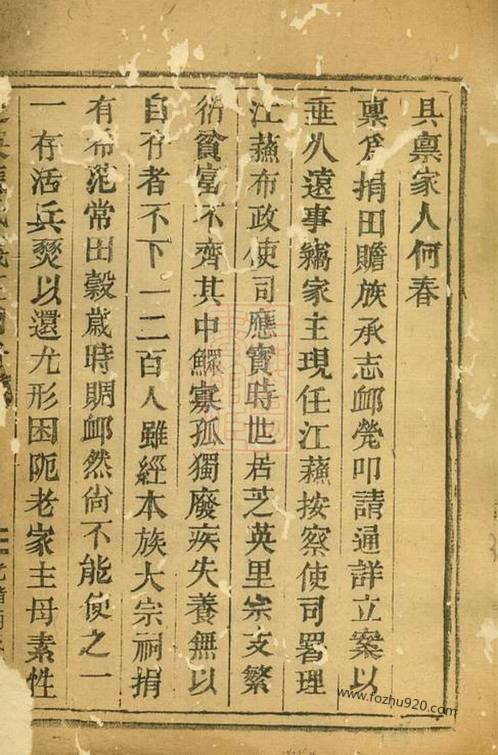 具禀家人何春
禀爲捐田贍族承志卹煢叩請通詳立案以
垂久遠事竊家主現任江蘇按察使司署理
江蘇布政使司應寶時世居芝英里宗支繁
衍貧富不齊其中鰥寡孤獨廢疾失養無以
自存者不下一二百人雖經本族大宗祠捐
有希范常田穀歲時賙卹然尙不能使之一
一存活兵燹以還尤形困阨老家主母素性
www.fozhu920.com